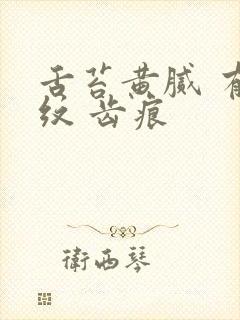 舌苔黄腻 有
纹 齿痕
衛西琴